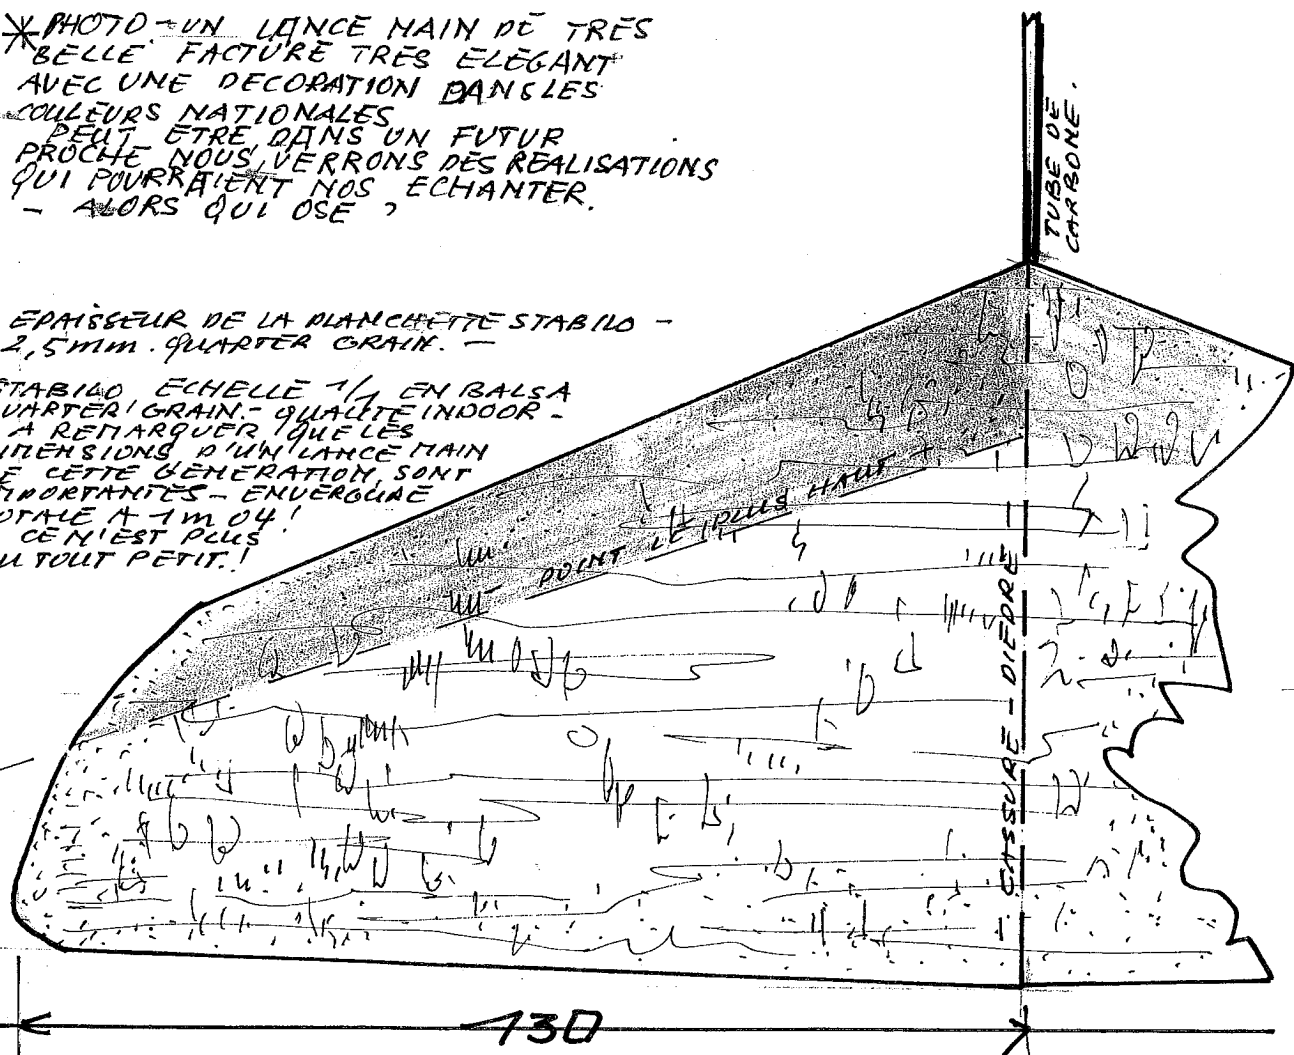 * PHOTO - UN LANCE MAIN DE TRES
BELLE FACTURE TRES ELEGANT
AVEC UNE DECORATION DANS LES
COULEURS NATIONALES
PEUT ETRE DANS UN FUTUR
PROCHE NOUS VERRONS DES REALISATIONS
QUI POURRAIENT NOS ECHANTER.
- ALORS QUI OSE ?
TUBE DE
CARBONE.
EPAISSEUR DE LA PLANCHETTE STABILO -
2,5mm. QUARTER GRAIN. -
STABILO ECHELLE 1/1 EN BALSA
UARTER GRAIN. - QUALITE INDOOR -
A REMARQUER QUE LES
IMENSIONS D'UN LANCE MAIN
E CETTE GENERATION SONT
MPORTANTES - ENVERGURE
OTALE A 1m04!
CE N'EST PLUS
U TOUT PETIT.!
POINT LE PLUS HAUT
CASSURE - DIEDRE -
130